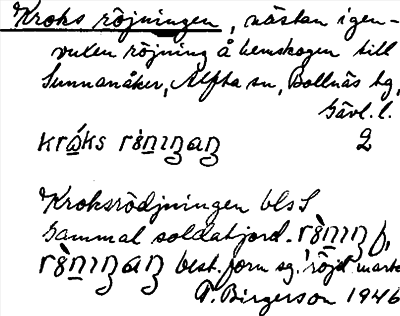 Kroks röjningen, nästan igen-
vuxen röjning å hemskogen till
Sunnanåker, Alfta sn, Bollnäs tg,
Gävl. l.
2
Kroksrödjningen bls S
Gammal soldatjord.
best. form sg. 'röjd mark'
P. Birgerson 1946